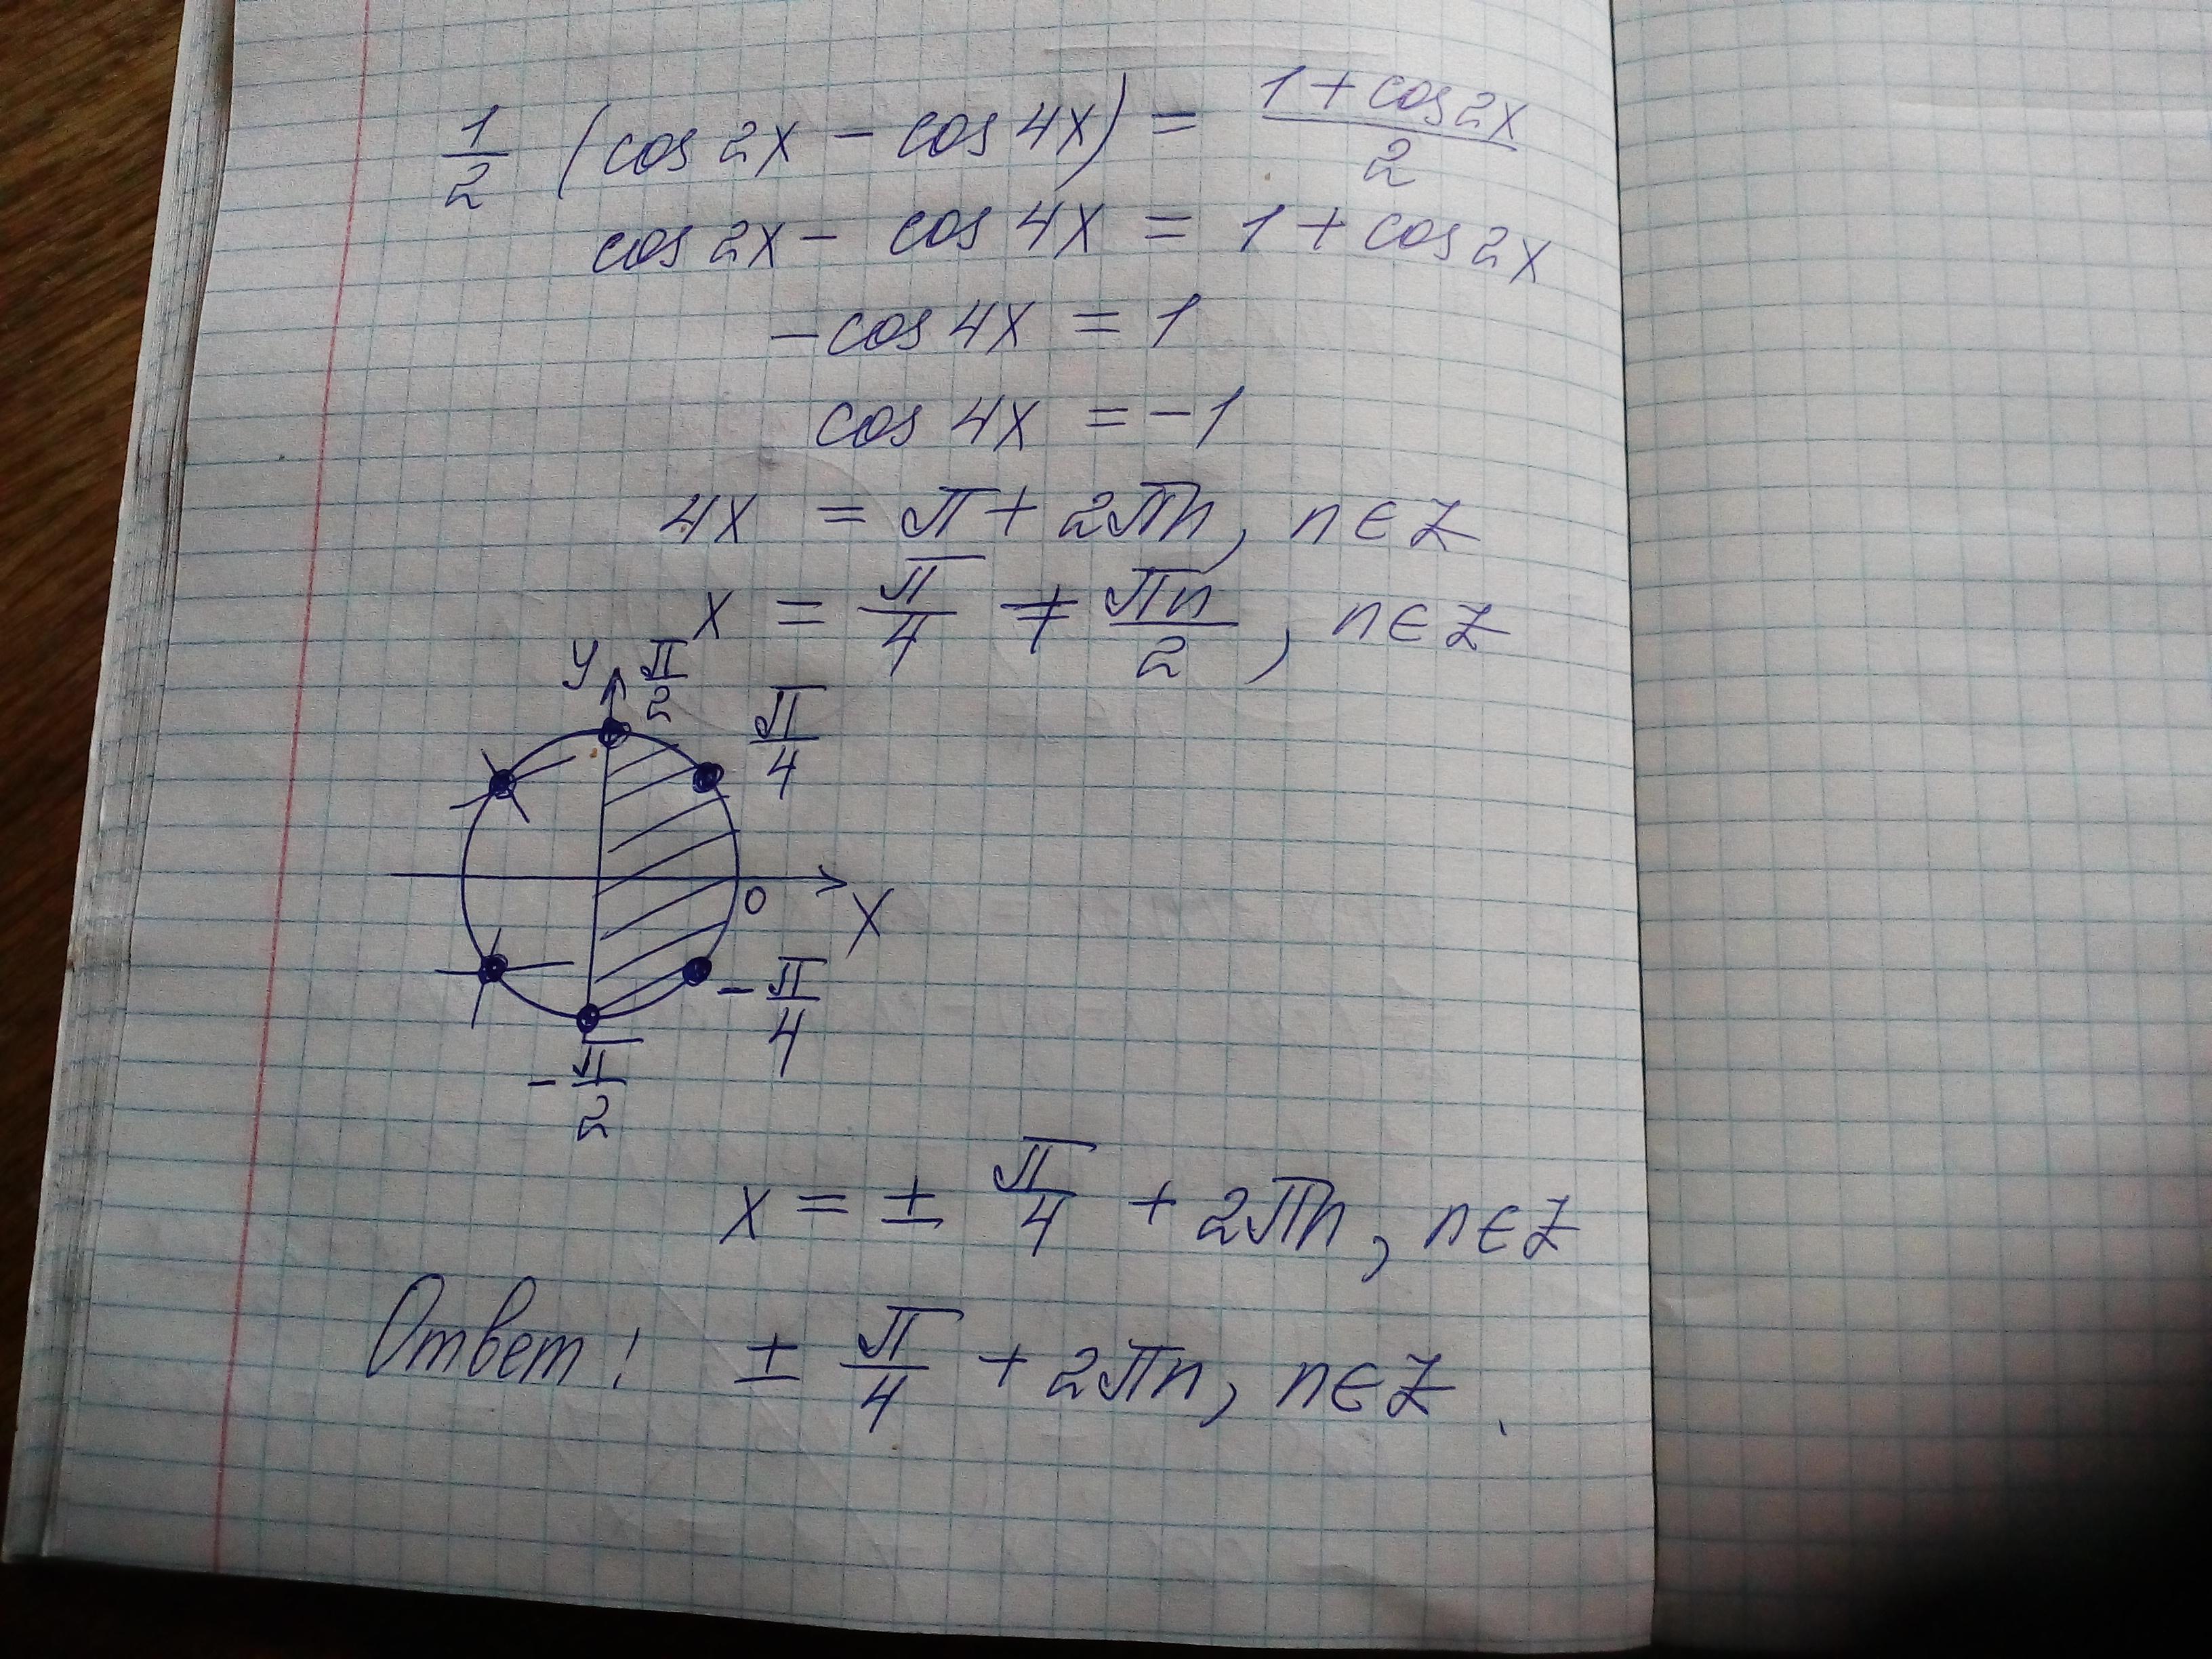 1/2 (cos 2x − cos 4x) = (1 + cos 2x)/2
cos 2x − cos 4x = 1 + cos 2x
−cos 4x = 1
cos 4x = −1
4x = π + 2πn, n ∈ Z
x = π/4 + πn/2, n ∈ Z
y π/2
π/4
0
x
−π/4
−π/2
x = ± π/4 + 2πn, n ∈ Z
Ответ: ± π/4 + 2πn, n ∈ Z.